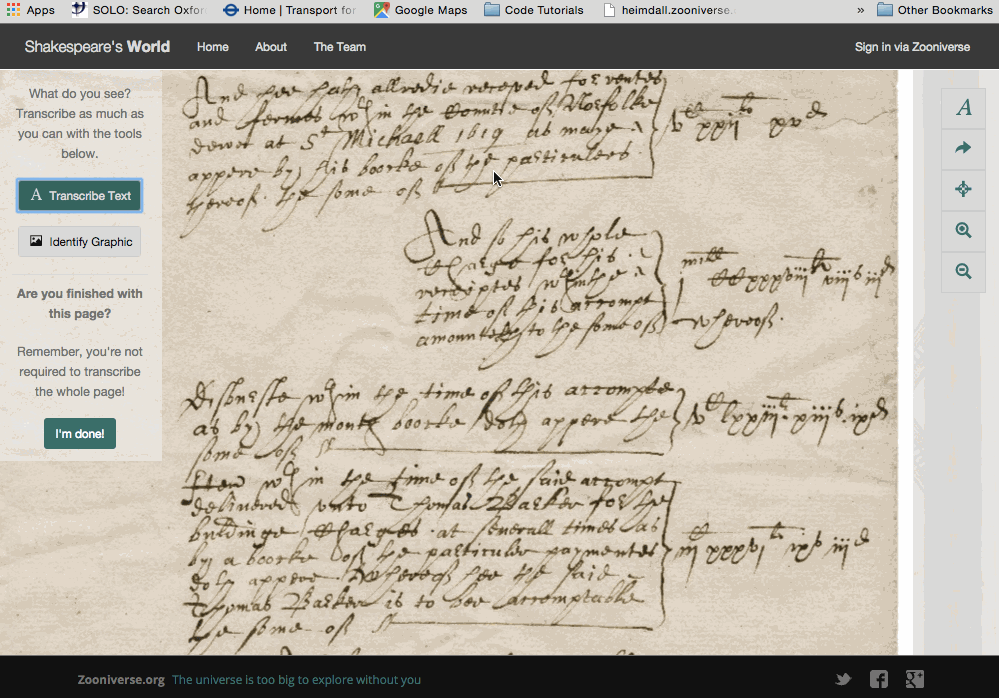 Apps SOLO: Search Oxfor Home | Transport for Google Maps Code Tutorials heimdall.zooniverse. » Other Bookmarks
Shakespeare's World Home About The Team Sign in via Zooniverse
What do you see?
Transcribe as much as
you can with the tools
below.
A Transcribe Text
Identify Graphic
Are you finished with
this page?
Remember, you're not
required to transcribe
the whole page!
I'm done!
A
And hee hath allredie receved for rentes
and fermes wch in the Countie of Norfolke
dewe at St Michaell 1619 as maye
appere by his boocke of the particulers
thereof the some of
And so his whole
Charge for his
receiptes wthin the
time of this accompt
amounteth to the some of
whereof.
Disburste wthin the time of this accompte
as by the monthe boocke doth appere the
some of
Item wthin the time of the said accompt
delivered unto Thomas Barker for the
buildinge Charges at severall times as
by a boocke of the particuler paymentes
doth appere whereof hee the said
Thomas Barker is to bee accomptable
the some of
Zooniverse.org The universe is too big to explore without you